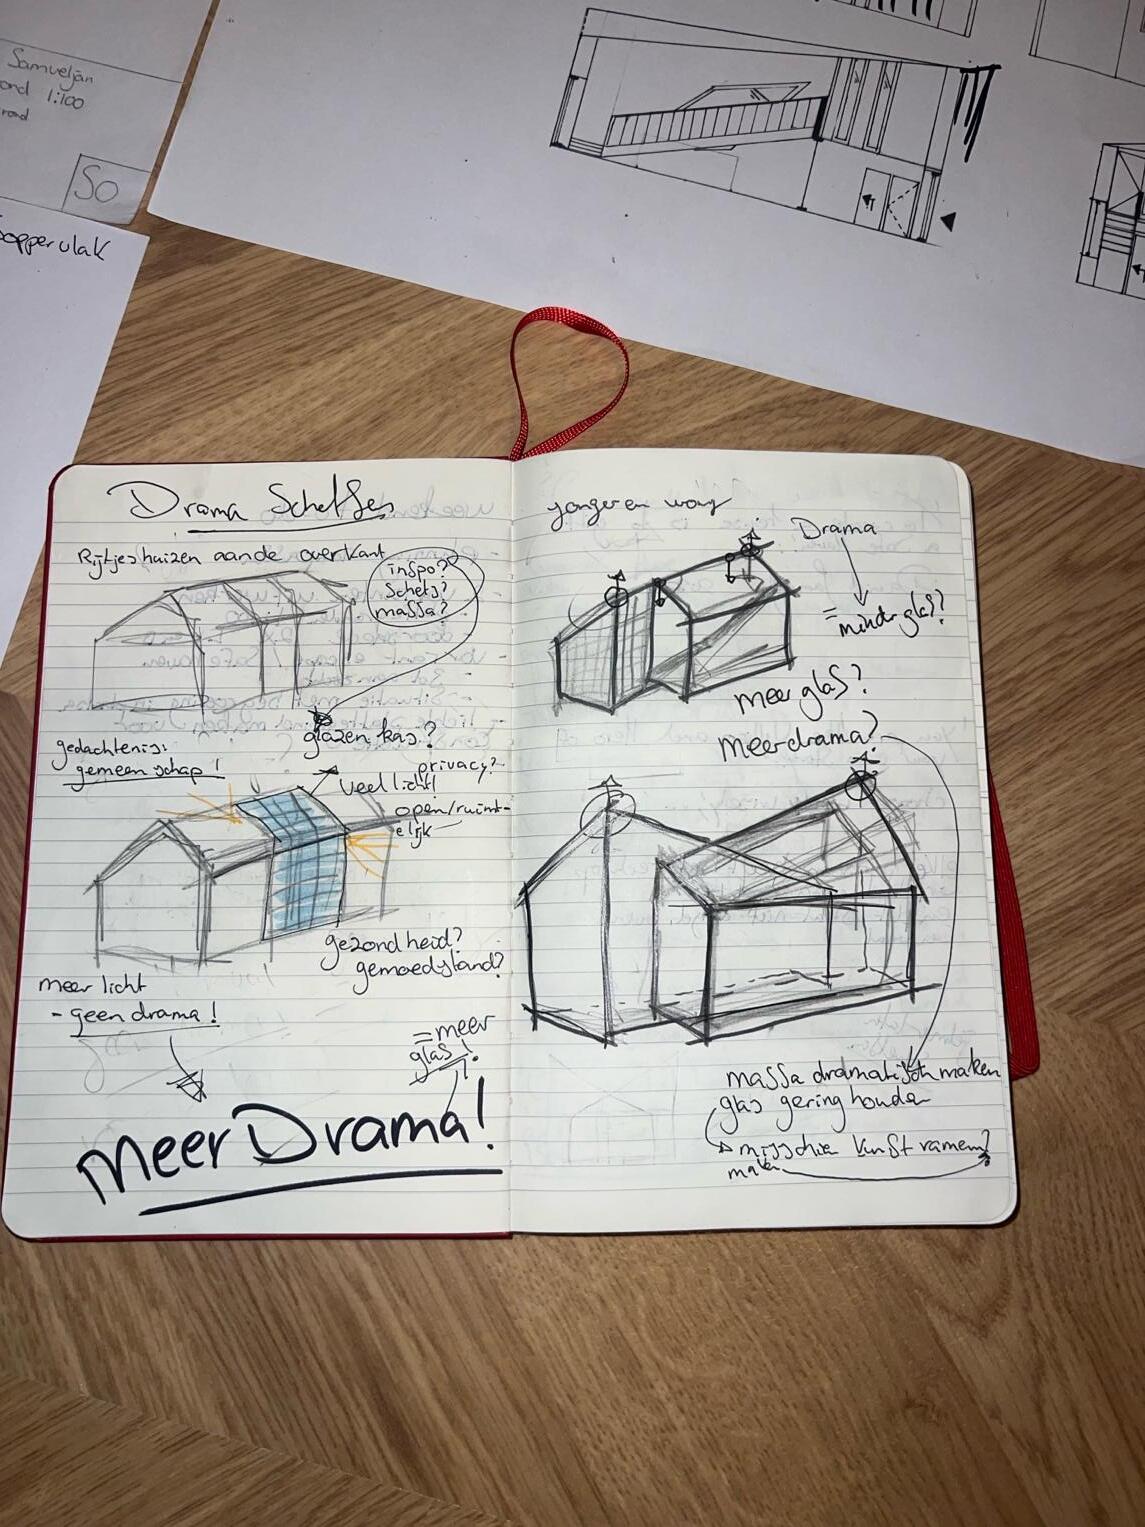 Samueljan
ond 1:100
rond
So
oppervlak
Drama Schetses
Rijtjeshuizen aande overkant
inspo?
Schets?
massa?
glazen kas?
gedachtenis:
gemeenschap!
privacy?
veel licht!
open/ruimt-
elijk
gezondheid?
gemoedstand?
meer licht
- geen drama!
=meer
glas!
Meer Drama!
jongeren wong
Drama
= minder glas?
meer glas?
Meer drama?
massa dramatisch maken
glas gering houden
misschien kunst ramen?
maken